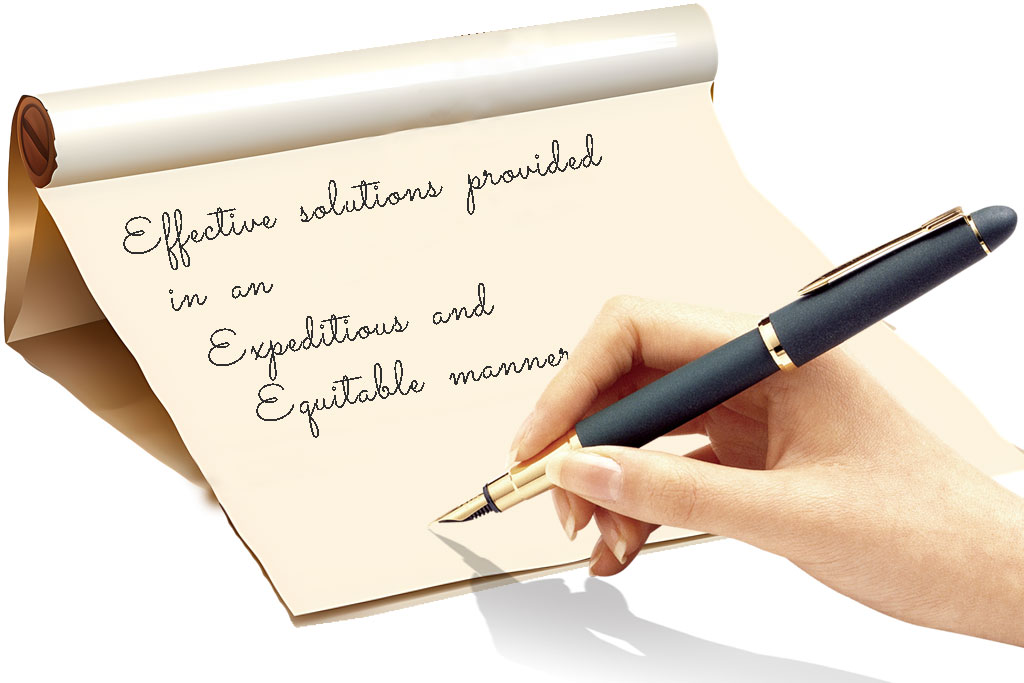 Effective solutions provided
in an
Expeditious and
Equitable manner